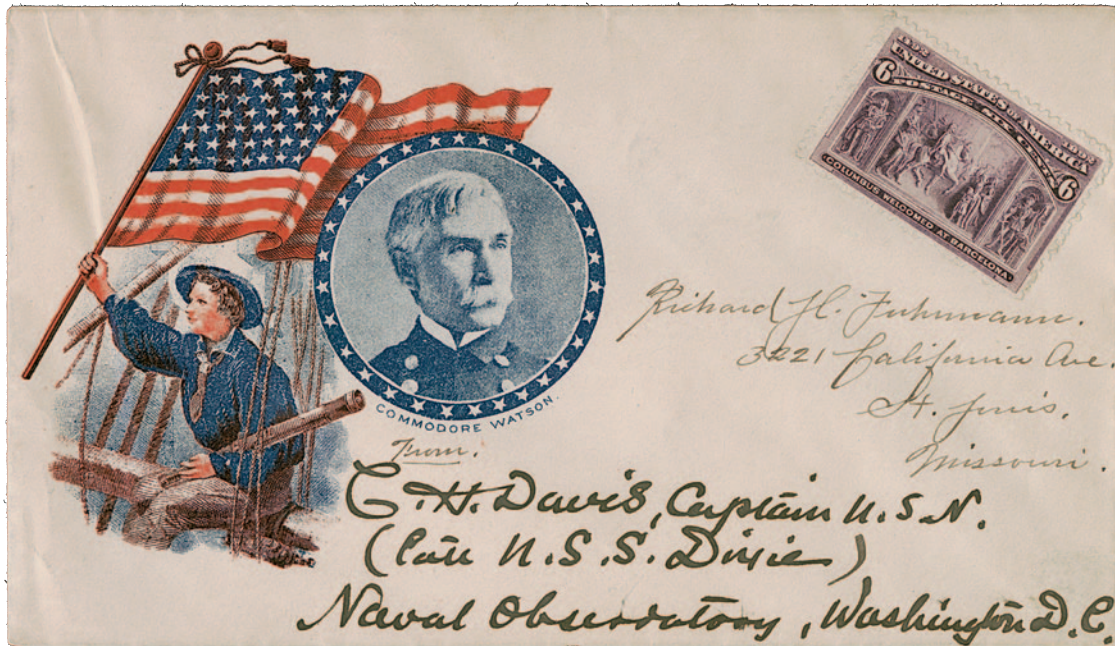 1492
1892
UNITED STATES OF AMERICA
POSTAGE SIX CENTS
6
6
COLUMBUS WELCOMED AT BARCELONA
COMMODORE WATSON.
Richard H. Fuhrmann.
3221 California Ave.
St. Louis.
Missouri.
From.
C. H. Davis, Captain U.S.N.
(late U.S.S. Dixie)
Naval Observatory, Washington D.C.